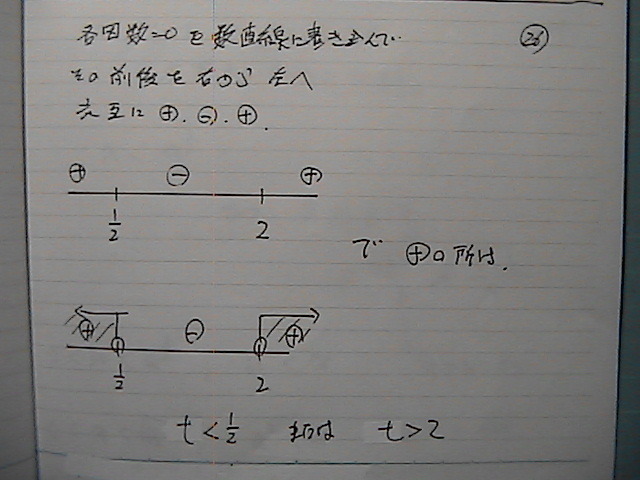 各因数=0 を数直線に書き込んで…
㉖
その前後を右から左へ
交互に ⊕.⊖.⊕.
⊕ ⊖ ⊕
1/2 2
で ⊕の所は.
⊕ ⊖ ⊕
1/2 2
t<1/2 または t>2